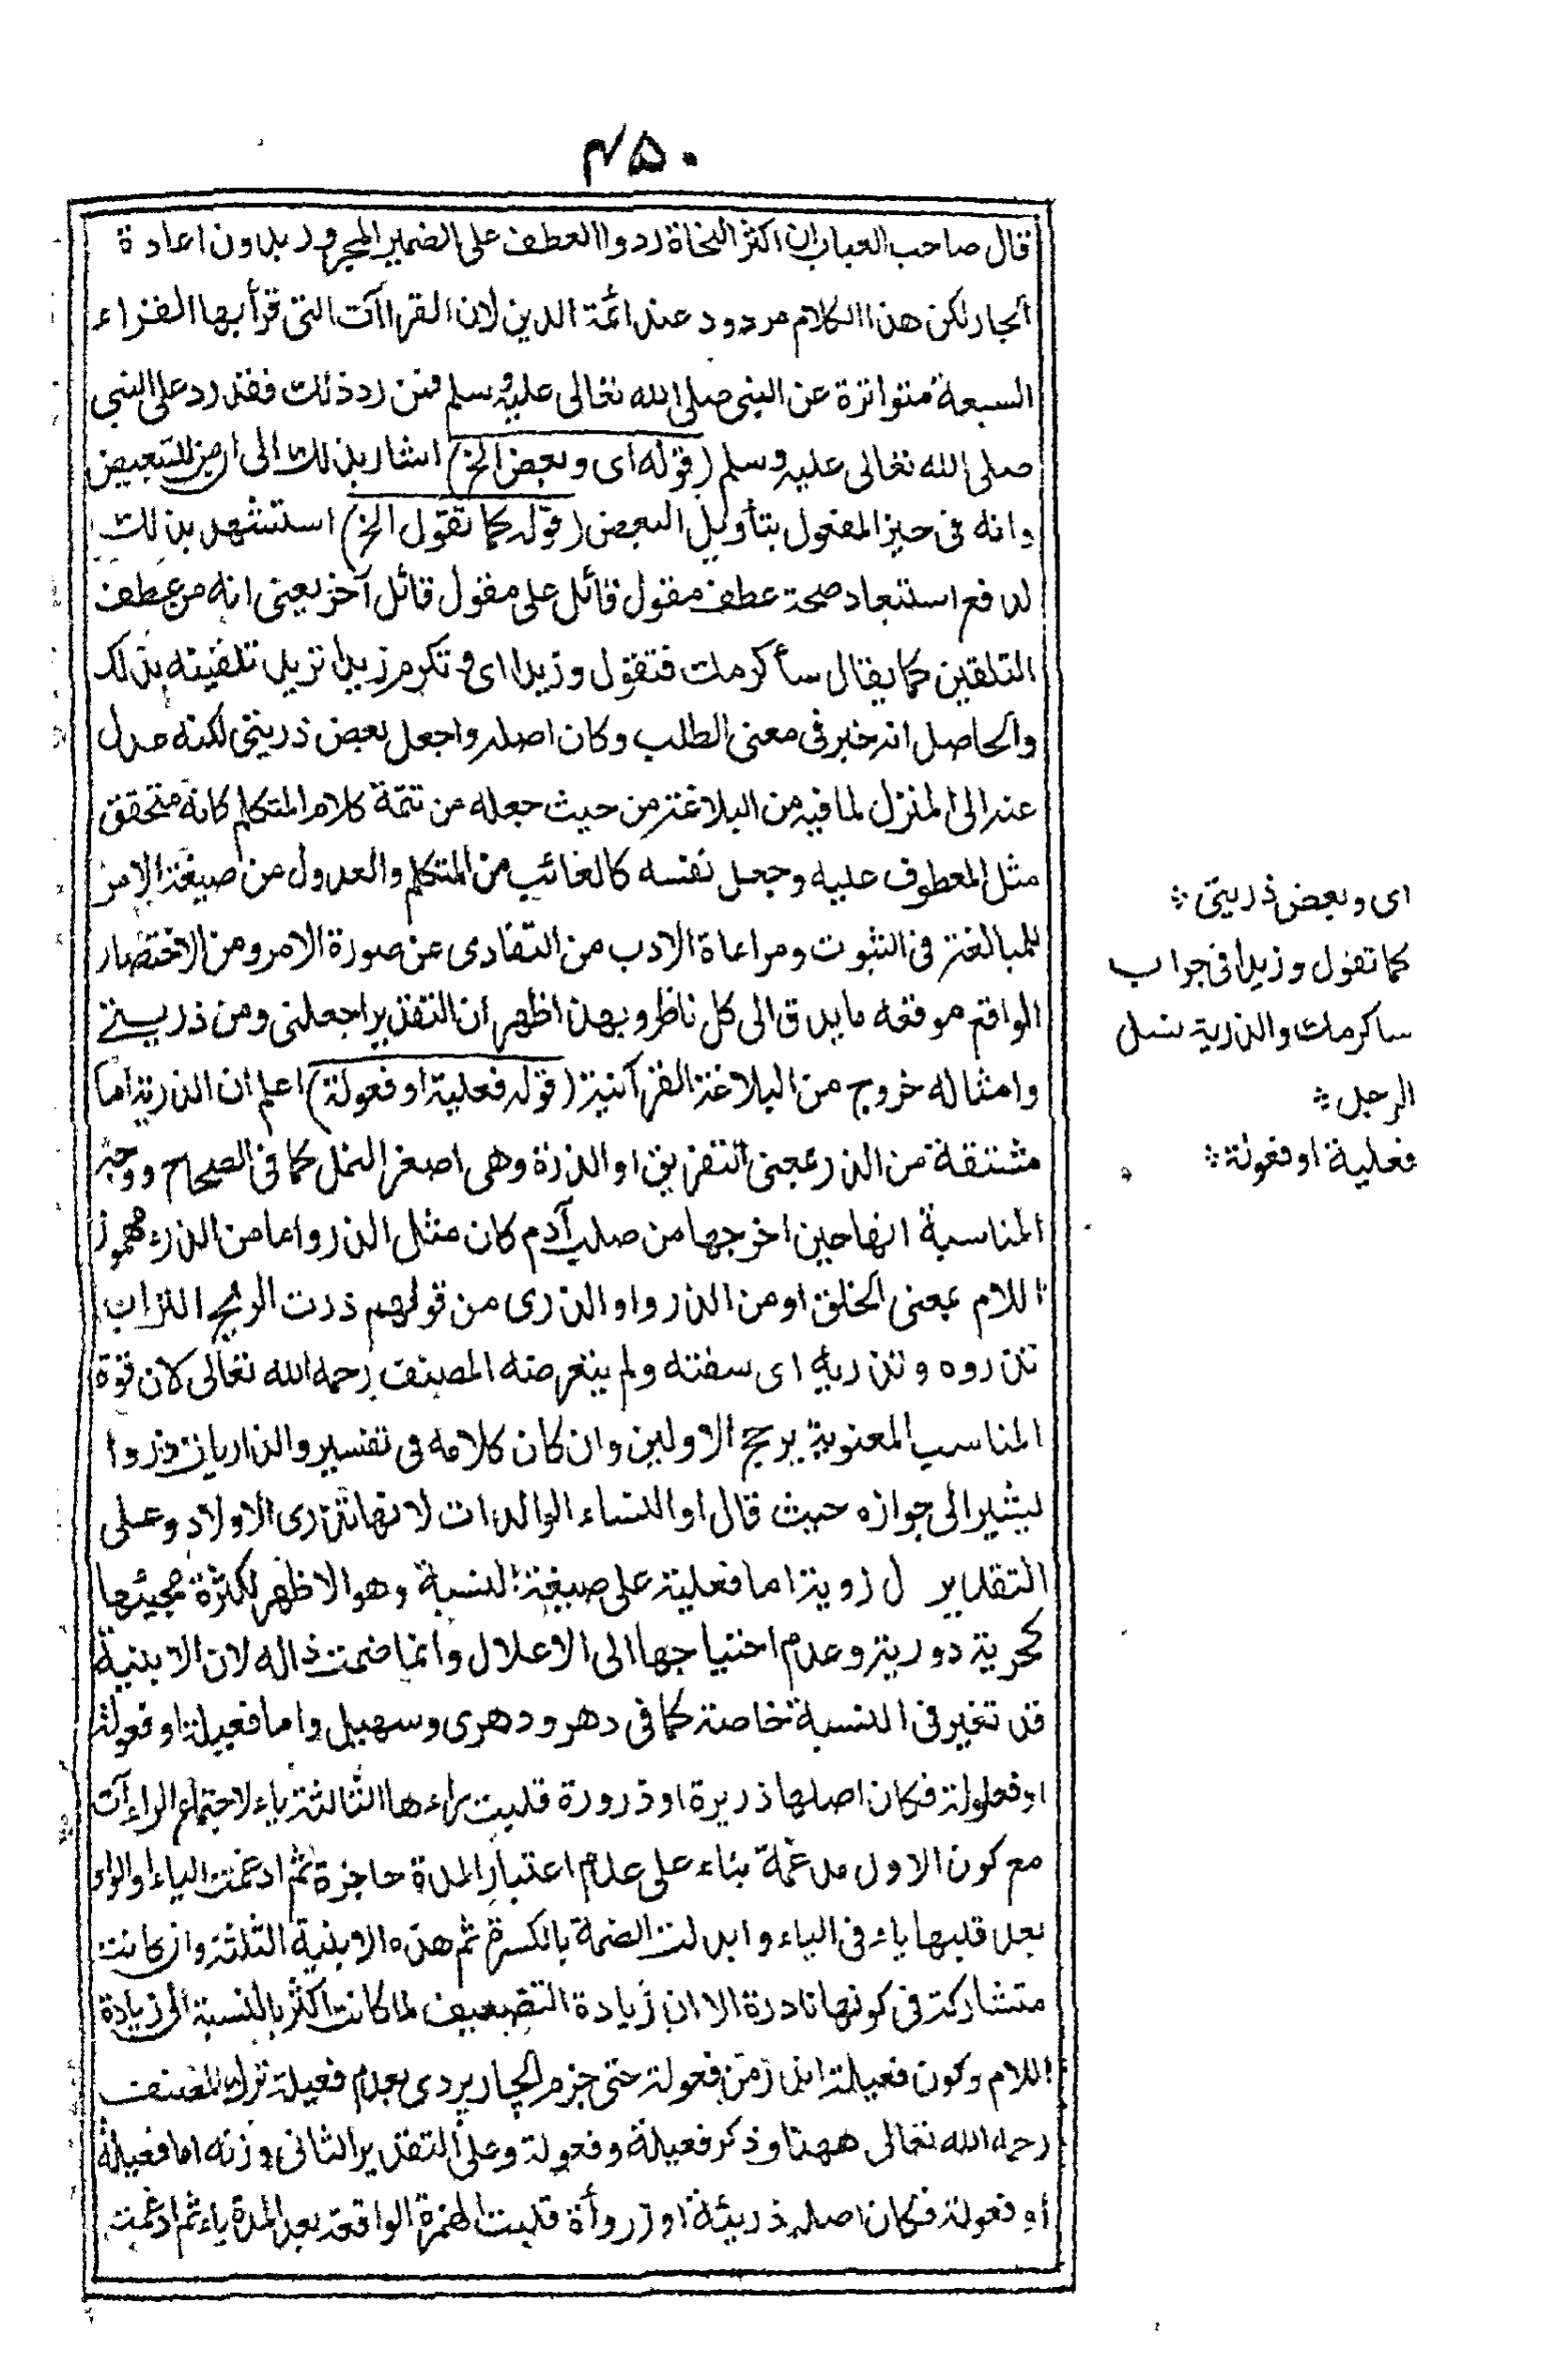 ۴۵۰
قال صاحب العباب ان اكثر النحاة ردوا العطف على الضمير المجرور بدون اعادة
الجار لكن هذا الكلام مردود عند ائمة الدين لان القراآت التى قرأ بها القراء
السبعة متواترة عن النبى صلى الله تعالى عليه وسلم فمن رد ذلك فقد رد على النبى
صلى الله تعالى عليه وسلم (قوله اى وبعض الخ) اشار بذلك الى ان من للتبعيض
وانه فى حيز المفعول بتأويل البعض (قوله كما تقول الخ) استشهد بذلك
لدفع استبعاد صحة عطف مقول قائل على مقول قائل آخر يعنى انه من عطف
التلقين كما يقال سأكرمك فتقول وزيدا اى وتكرم زيدا تريد تلقينه بذلك
والحاصل انه خبر فى معنى الطلب وكان اصله واجعل بعض ذريتى لكنه عدل
عنه الى المنزل لما فيه من البلاغة من حيث جعله من تتمة كلام المتكلم كانه متحقق
مثل المعطوف عليه وجعل نفسه كالغائب من المتكلم والعدول من صيغة الامر
للمبالغة فى الثبوت ومراعاة الادب من التفادى عن صورة الامر ومن الاختصار
الواقع موقعه ما يدق الى كل ناظر وبهذا ظهر ان التقدير اجعلنى ومن ذريتى
وامثاله خروج من البلاغة القرآنية (قوله فعلية او فعولة) اعلم ان الذرية اما
مشتقة من الذر بمعنى التفريق او الذرة وهى اصغر النمل كما فى الصحاح ووجه
المناسبة انها حين اخرجها من صلب آدم كان مثل الذر واما من الذرء مهموز
اللام بمعنى الخلق او من الذرو او الذرى من قولهم ذرت الريح التراب
تذروه وتذريه اى سفته ولم يتعرضه المصنف رحمه الله تعالى لان قوة
المناسب المعنوية يرجح الاولين وان كان كلامه فى تفسير والذاريات ذروا
يشير الى جوازه حيث قال او النساء الوالدات لانها تذرى الاولاد وعلى
التقدير ل زوية اما فعلية على صيغة النسبة وهو الاظهر لكثرة مجيئها
كحرية دورية وعدم احتياجها الى الاعلال وانما ضمت ذاله لان الابنية
قد تغير فى النسبة خاصة كما فى دهر ودهرى وسهيل واما فعيلة او فعولة
او فعلولة فكان اصلها ذريرة او ذرورة قلبت راءها الثالثة ياء لاجتماع الراءآت
مع كون الاول مدغمة بناء على عدم اعتبار المدة حاجزة ثم ادغمت الياء او الواو
بعد قلبها ياء فى الياء وابدلت الضمة بالكسرة ثم هذه الابنية الثلثة وان كانت
متشاركة فى كونها نادرة الا ان زيادة التضعيف لما كانت اكثر بالنسبة الى زيادة
اللام وكون فعيلة اندر من فعولة حتى جزم الجاربردى بعدم فعيلة ترك المصنف
رحمه الله تعالى ههنا وذكر فعيلة وفعولة وعلى التقدير الثانى وزنه اما فعيلة
او فعولة فكان اصله ذريئة او ذروأة قلبت الهمزة الواقعة بعد المدة ياء ثم ادغمت
اى وبعض ذريتى
كما تقول وزيدا فى جواب
ساكرمك والذرية نسل
الرجل
فعلية او فعولة